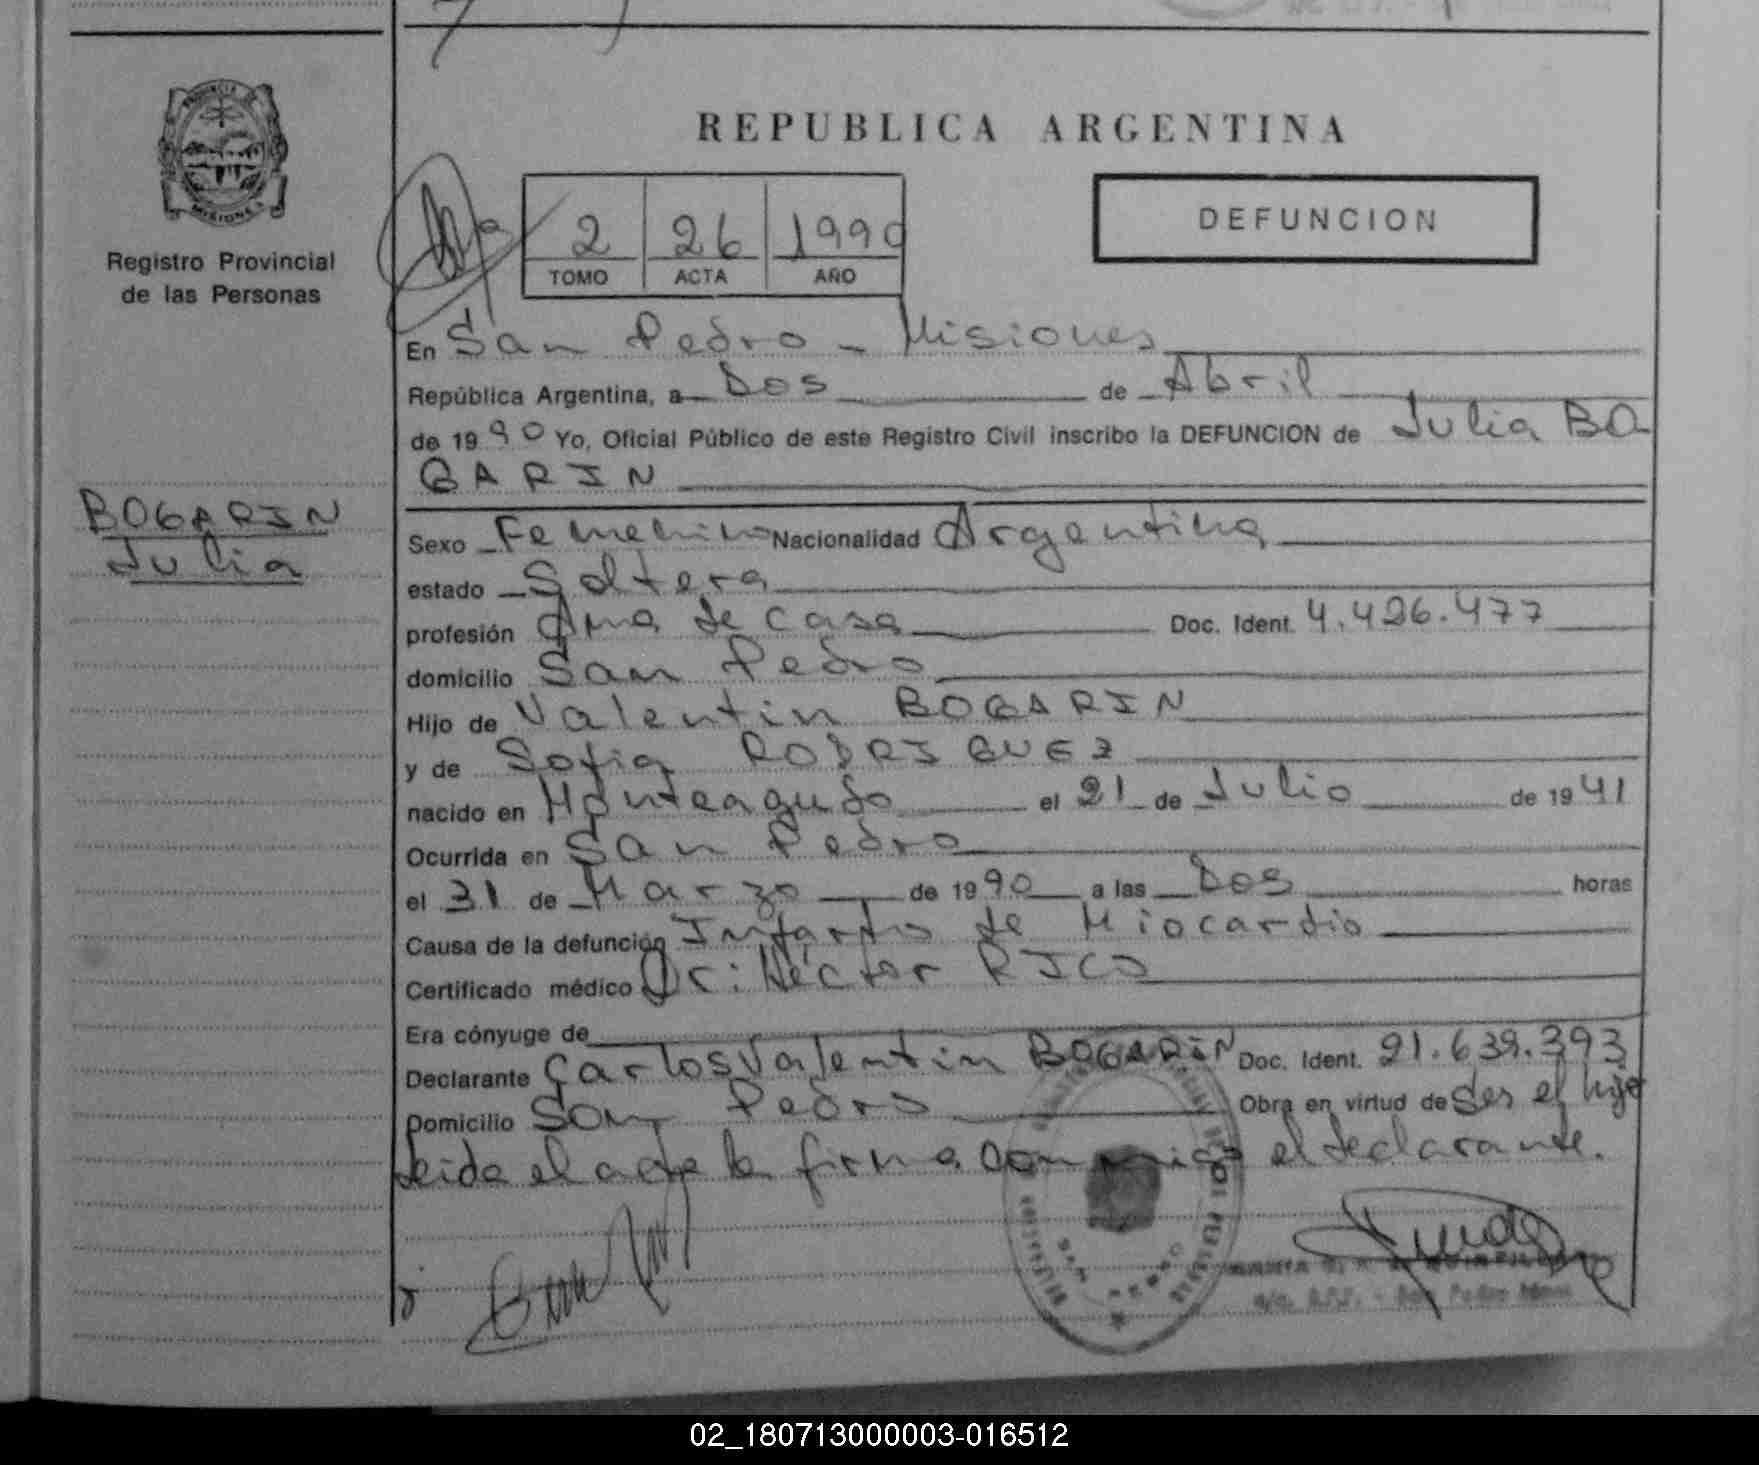 PROVINCIA DE
MISIONES
Registro Provincial
de las Personas
BOGARIN
Julia
REPUBLICA ARGENTINA
DEFUNCION
2 26 1990
TOMO ACTA AÑO
En San Pedro - Misiones
República Argentina, a Dos de Abril
de 1990 Yo, Oficial Público de este Registro Civil inscribo la DEFUNCION de Julia BO
GARIN
Sexo Femenino Nacionalidad Argentina
estado Soltera
profesión Ama de casa Doc. Ident. 4.426.477
domicilio San Pedro
Hijo de Valentin BOGARIN
y de Sofia RODRIGUEZ
nacido en Monteagudo el 21 de Julio de 1941
Ocurrida en San Pedro
el 31 de Marzo de 1990 a las Dos horas
Causa de la defunción Infarto de Miocardio
Certificado médico Dr: Héctor RICO
Era cónyuge de
Declarante Carlos Valentin BOGARIN Doc. Ident. 21.639.393
Domicilio San Pedro Obra en virtud de Ser el hijo
Leida el acta la firma conmigo el declarante.
San Pedro
02_180713000003-016512